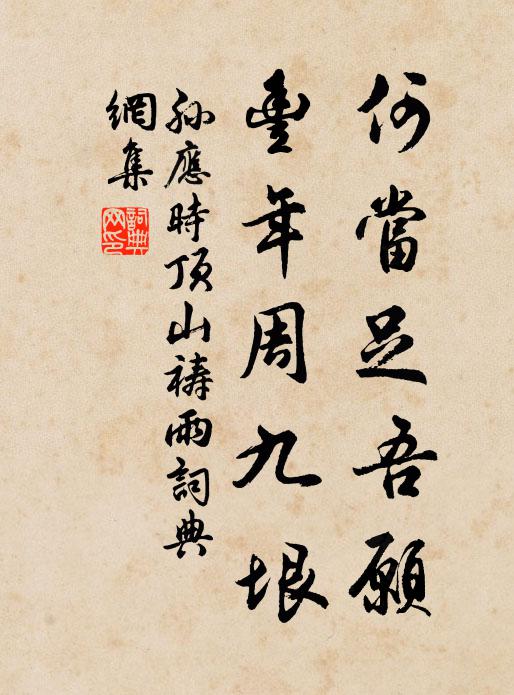 何當足吾願
豐年周九垠
孫應時頂山禱雨詞典
網集
詞典
网印